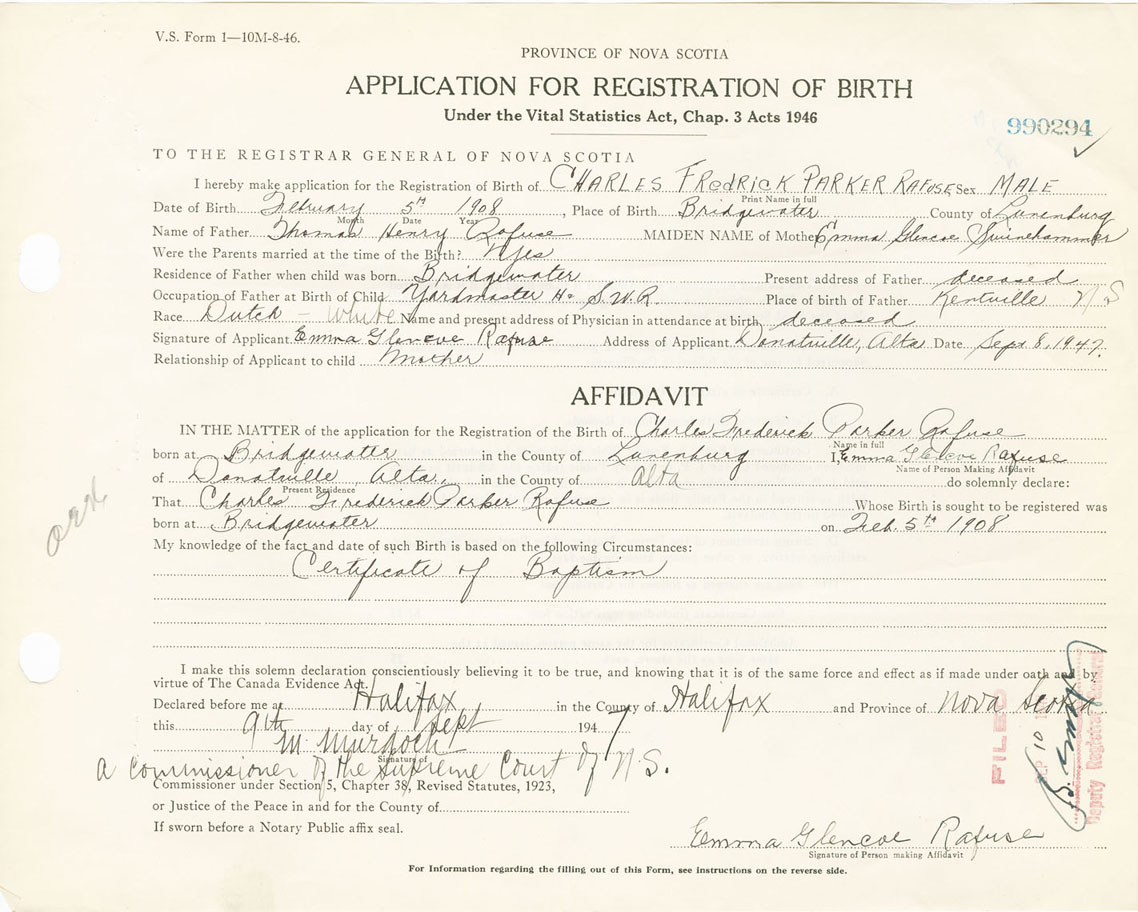 V.S. Form 1—10M-8-46.
PROVINCE OF NOVA SCOTIA
APPLICATION FOR REGISTRATION OF BIRTH
Under the Vital Statistics Act, Chap. 3 Acts 1946
990294
TO THE REGISTRAR GENERAL OF NOVA SCOTIA
I hereby make application for the Registration of Birth of CHARLES FREDRICK PARKER RAFUSE Sex MALE
Print Name in full
Date of Birth February 5th 1908, Place of Birth Bridgewater County of Lunenburg
Month Date Year
Name of Father Thomas Henry Rafuse MAIDEN NAME of Mother Emma Glencoe Swinehammer
Were the Parents married at the time of the Birth? Yes
Residence of Father when child was born Bridgewater Present address of Father deceased
Occupation of Father at Birth of Child Yardmaster H. & S.W.R. Place of birth of Father Kentville N S
Race Dutch - White Name and present address of Physician in attendance at birth deceased
Signature of Applicant Emma Glencoe Rafuse Address of Applicant Donatville, Alta Date Sept 8, 1947.
Relationship of Applicant to child Mother
AFFIDAVIT
IN THE MATTER of the application for the Registration of the Birth of Charles Frederick Parker Rafuse
Name in full
born at Bridgewater in the County of Lunenburg I, Emma Glencoe Rafuse
Name of Person Making Affidavit
of Donatville, Alta., in the County of Alta do solemnly declare:
Present Residence
That Charles Frederick Parker Rafuse Whose Birth is sought to be registered was
born at Bridgewater on Feb. 5th 1908
My knowledge of the fact and date of such Birth is based on the following Circumstances:
Certificate of Baptism
I make this solemn declaration conscientiously believing it to be true, and knowing that it is of the same force and effect as if made under oath and by
virtue of The Canada Evidence Act.
Declared before me at Halifax in the County of Halifax and Province of Nova Scotia
this 9th day of Sept 1947
M Murdoch
Signature of
a Commissioner of the Supreme Court of N.S.
Commissioner under Section 5, Chapter 38, Revised Statutes, 1923,
or Justice of the Peace in and for the County of
If sworn before a Notary Public affix seal.
Emma Glencoe Rafuse
Signature of Person making Affidavit
For Information regarding the filling out of this Form, see instructions on the reverse side.
FILED
Deputy Registrar General